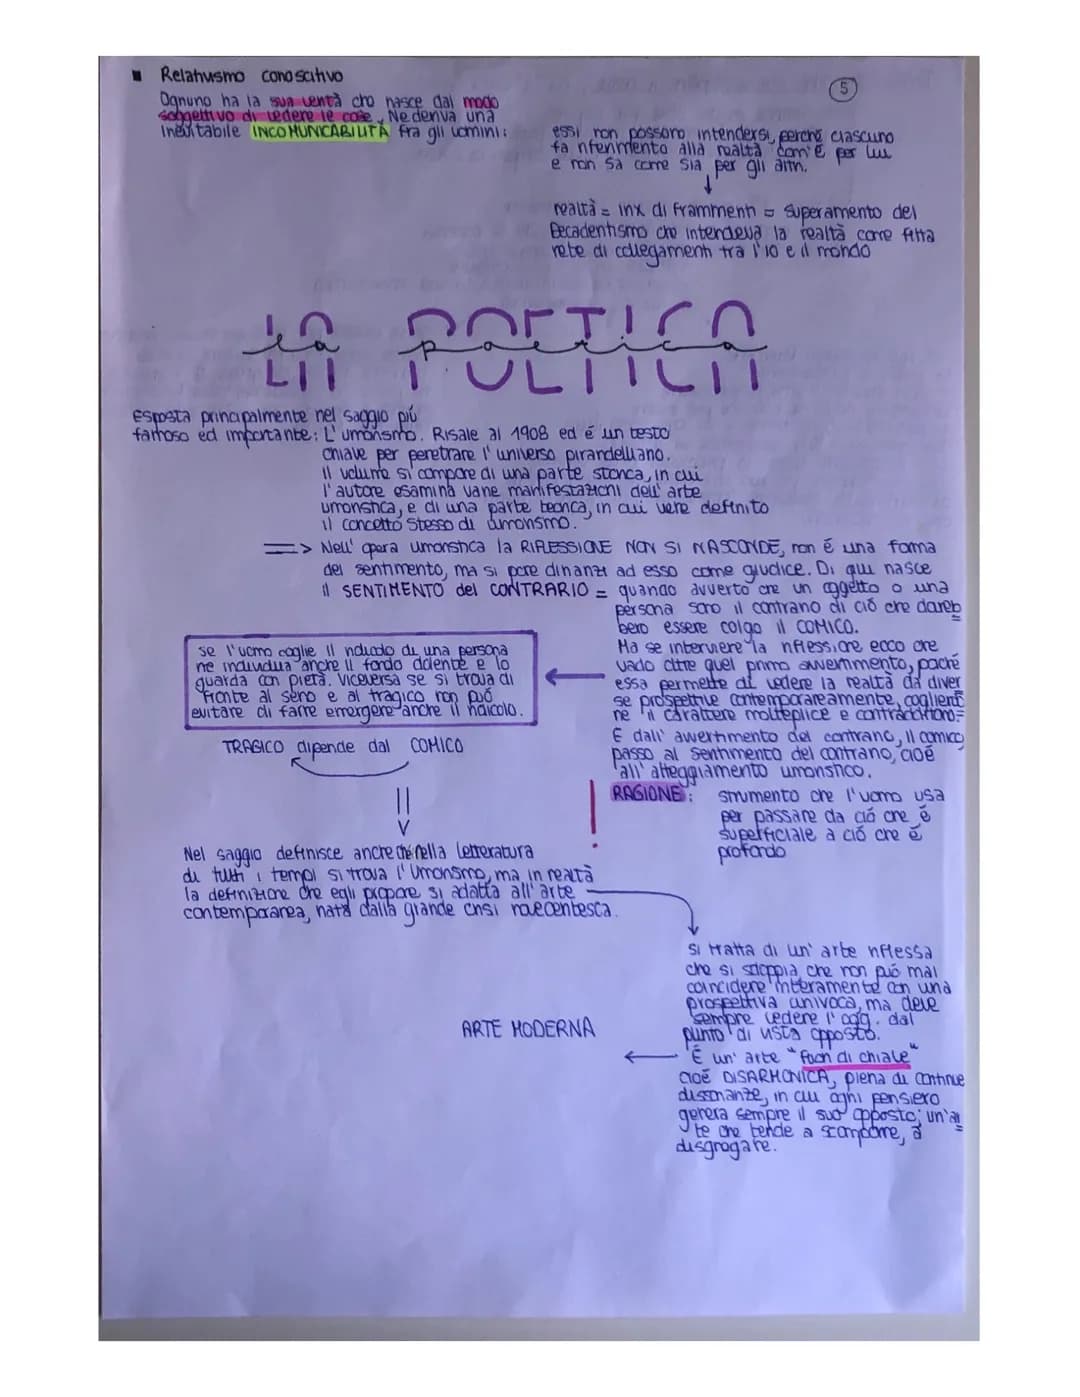 5
Relativismo conoscitivo
Ognuno ha la sua verità che nasce dal modo
soggettivo di vedere le cose. Ne deriva una
inevitabile INCOMUNICABILITÀ fra gli uomini:
essi non possono intendersi, perché ciascuno
fa riferimento alla realtà com'è per lui
e non sa come sia per gli altri.
realtà = inx di frammenti = superamento del
Decadentismo che intendeva la realtà come fitta
rete di collegamenti tra l'io e il mondo
la poetica
LA POETICA
Esposta principalmente nel saggio più
famoso ed importante: L'umorismo. Risale al 1908 ed é un testo
chiave per penetrare l'universo pirandelliano.
Il volume si compone di una parte storica, in cui
l'autore esamina varie manifestazioni dell'arte
umoristica, e di una parte teorica, in cui viene definito
il concetto stesso di umorismo.
=> Nell'opera umoristica la RIFLESSIONE NON SI NASCONDE, non é una forma
del sentimento, ma si pone dinanzi ad esso come giudice. Di qui nasce
il SENTIMENTO del CONTRARIO = quando avverto che un oggetto o una
persona sono il contrario di ciò che dareb
bero essere colgo il COMICO.
Ma se interviene la riflessione ecco che
vado oltre quel primo avvertimento, poiché
essa permette di vedere la realtà da diver
se prospettive contemporaneamente, coglien
ne il carattere molteplice e contraddittorio.
E dall'avvertimento del contrario, il comico,
passo al sentimento del contrario, cioé
all'atteggiamento umoristico.
se l'uomo coglie il ridicolo di una persona
ne individua anche il fondo dolente e lo
guarda con pietà. Viceversa se si trova di
fronte al serio e al tragico non può
evitare di farne emergere anche il ridicolo.
TRAGICO dipende dal COMICO
RAGIONE: strumento che l'uomo usa
per passare da ciò che é
superficiale a ciò che é
profondo
Nel saggio definisce anche che nella letteratura
di tutti i tempi si trova l'Umorismo, ma in realtà
la definizione che egli propone si adatta all'arte
contemporanea, nata dalla grande crisi novecentesca.
si tratta di un'arte riflessa
che si sdoppia, che non può mai
coincidere interamente con una
prospettiva univoca, ma deve
sempre vedere l'ogg. dal
punto di vista opposto.
É un'arte "fuori di chiave"
cioé DISARMONICA, piena di continue
dissonanze, in cui ogni pensiero
genera sempre il suo opposto; un'ar
te che tende a scomporre, a
disgregare.
ARTE MODERNA